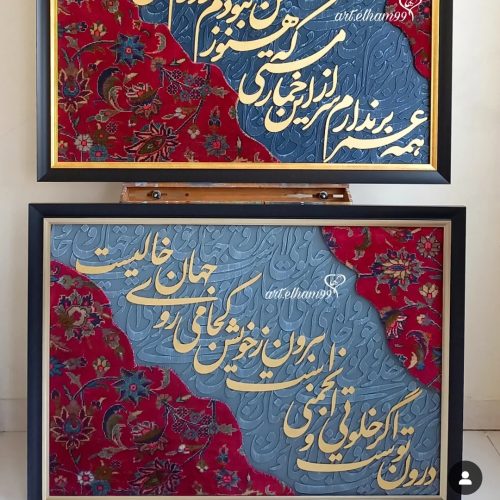 art.elham99
همه عمر برندارم سر از این خمار مستی که هنوز من نبودم
art.elham99
درون توست اگر خلوتی و انجمنی است
برون ز خویش کجا می روی جهان خالیست